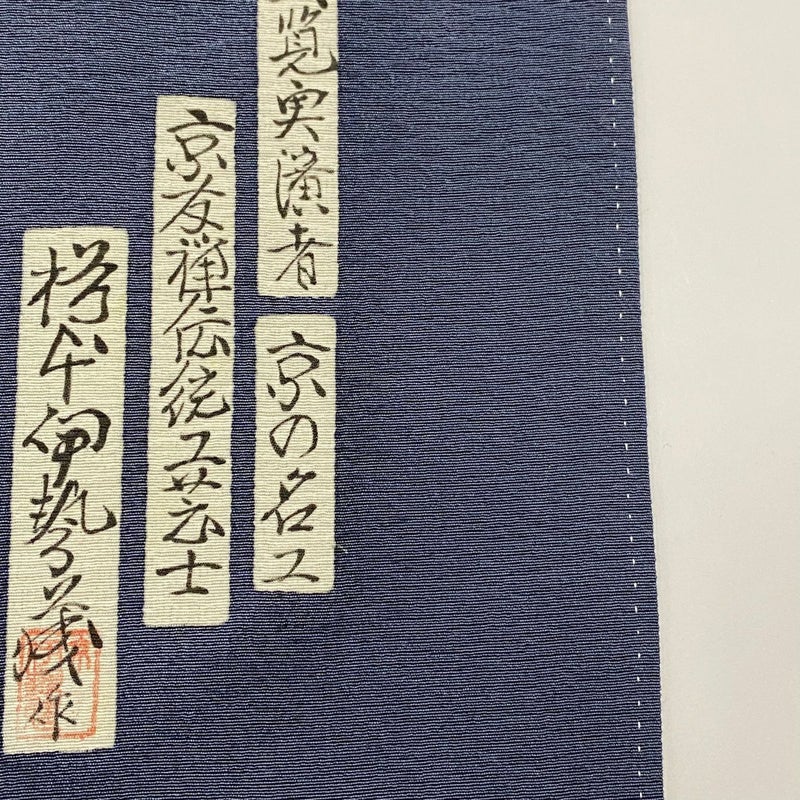 覧実演者
京の名工
京友禅伝統工芸士
伊勢 作